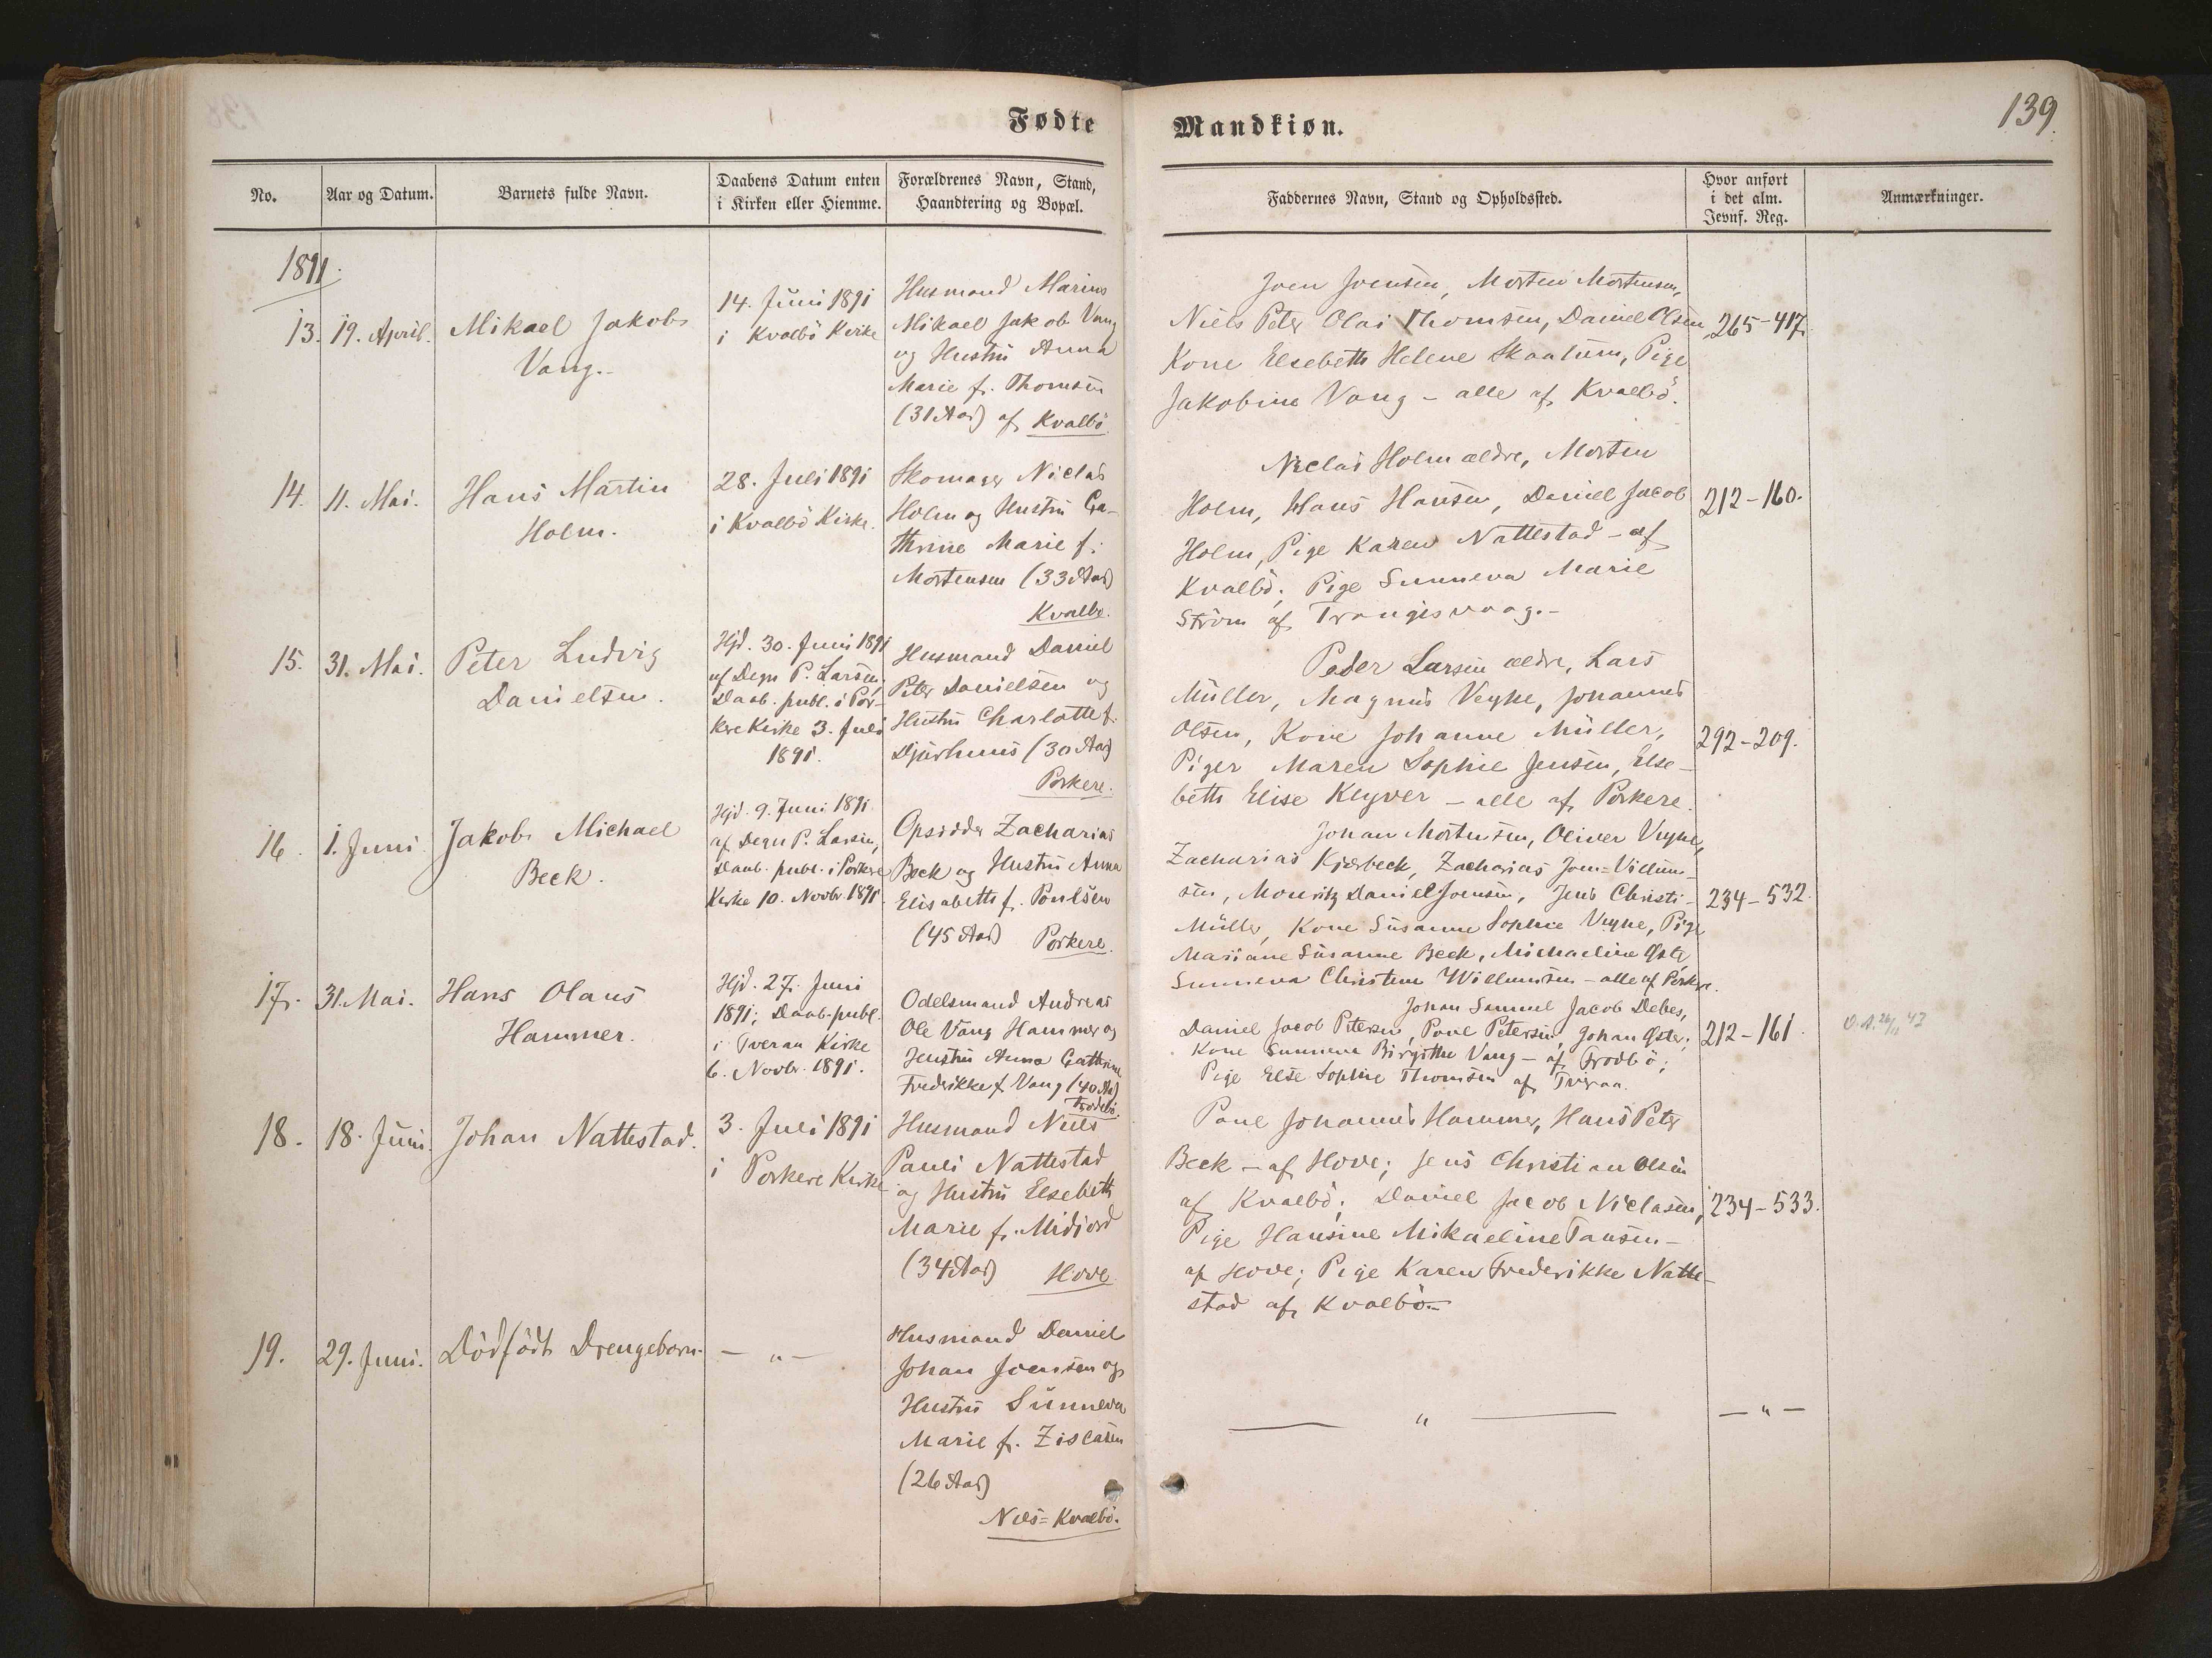 139.
Fødte Mandkiøn.
No.
Aar og Datum.
Barnets fulde Navn.
Daabens Datum enten
i Kirken eller Hiemme.
Forældrenes Navn, Stand,
Haandtering og Bopæl.
Faddernes Navn, Stand og Opholdssted.
Hvor anført
i det alm.
Jevnf. Reg.
Anmærkninger.
1891.
13. 19. April.
Mikael Jakob
Vang.
14. Juni 1891
i Kvalbö Kirke
Husmand Marius
Mikael Jakob Vang
og Hustru Anna
Marie f. Thomsen
(31 Aar) af Kvalbö
Joen Joensen, Morten Mortensen,
Niels Peter Olai Thomsen, Daniel Olsen
Kone Elsebeth Helene Skaalum, Pige
Jakobine Vang – alle af Kvalbö.
265-417.
14. 11. Mai.
Hans Martin
Holm.
28. Juli 1891
i Kvalbö Kirke.
Skomager Niclas
Holm og Hustru Ca-
thrine Marie f.
Mortensen (33 Aar)
Kvalbö.
Niclas Holm ældre, Morten
Holm, Hans Hansen, Daniel Jacob
Holm, Pige Karen Nattestad – af
Kvalbö; Pige Sunneva Marie
Ström af Trangisvaag. –
212-160.
15. 31. Mai.
Peter Ludvig
Danielsen.
Hjd. 30. Juni 1891
af Degn P. Larsen,
Daab. publ. i Por-
kere Kirke 3. Juli
1891.
Husmand Daniel
Peter Danielsen og
Hustru Charlotte f.
Djurhuus (30 Aar)
Porkere.
Peder Larsen ældre, Lars
Müller, Magnus Veyhe, Johannes
Olsen, Kone Johanne Müller,
Piger Maren Sophie Jensen, Else-
beth Elise Klyver – alle af Porkere.
292-209.
16. 1. Juni
Jakob Michael
Beck.
Hjd. 9. Juni 1891
af Degn P. Larsen,
Daab. publ. i Porkere
Kirke 10. Novbr. 1891.
Opsidder Zacharias
Beck og Hustru Anna
Elisabeth f. Poulsen
(45 Aar) Porkere.
Johan Mortensen, Oliver Veyhe,
Zacharias Kjærbeck, Zacharias Joen=Villum-
sen, Mouritz Daniel Joensen, Jens Christi-
Müller, Kone Susanne Sophie Veyhe, Pige
Mariane Susanne Beck, Michaeline Øster
Sunneva Christine Willumsen – alle af Porkere.
234-532.
17. 31. Mai.
Hans Olaus
Hammer.
Hjd. 27. Juni
1891; Daab. publ.
i Tveraa Kirke
6. Novbr. 1891.
Odelsmand Andreas
Ole Vang Hammer og
Hustru Anna Cathrine
Frederikke f. Vang (40 Aar)
Frodebö.
Johan Samuel Jacob Debes,
Daniel Jacob Petersen, Poul Petersen, Johan Øster;
Kone Sunneva Birgithe Vang – af Frodbö;
Pige Else Sophie Thomsen af Tveraa.
212-161.
18. 18. Juni.
Johan Nattestad.
3. Juli 1891
i Porkere Kirke
Husmand Niels
Pauli Nattestad
og Hustru Elsebeth
Marie f. Midjord
(34 Aar) Hove
Poul Johannes Hammer, Hans Peter
Beck – af Hove; Jens Christian Olsen
af Kvalbö; Daniel Jacob Niclasen,
Pige Hansine Mikaeline Tausen –
af Hove; Pige Karen Frederikke Natte-
stad af Kvalbö –
234-533.
19. 29. Juni.
Dödfödt Drengebarn.
– " –
Husmand Daniel
Johan Joensen og
Hustru Sunneva
Marie f. Zislasen
(26 Aar)
Nes=Kvalbö.
– " –
– " –